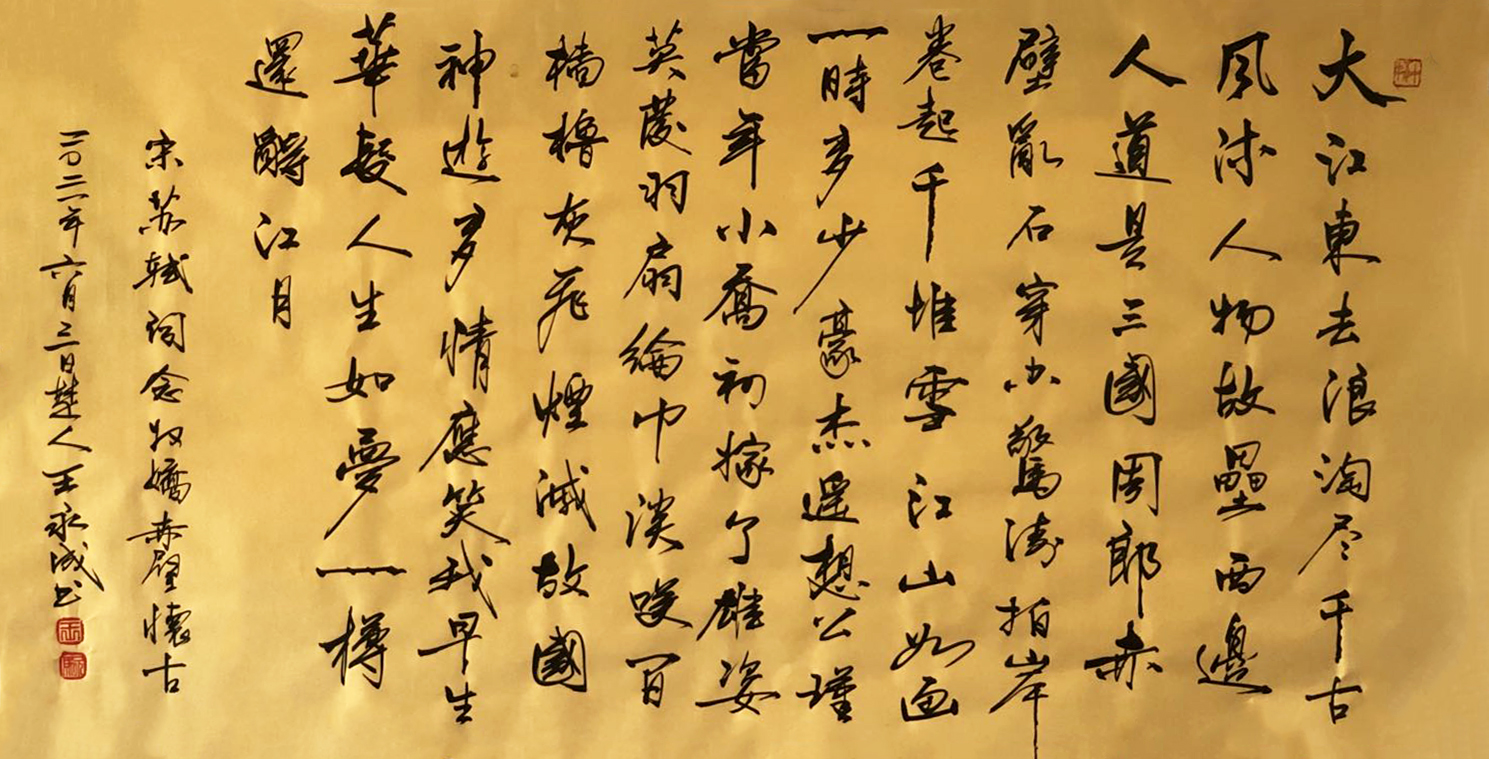 大江東去浪淘尽千古
风流人物故壘西邊
人道是三國周郎赤
壁亂石穿空驚涛拍岸
卷起千堆雪江山如画
一時多少豪杰遥想公瑾
當年小喬初嫁了雄姿
英發羽扇綸巾談咲间
檣櫓灰飛煙滅故國
神遊多情應笑我早生
華髮人生如夢一樽
還酹江月
宋苏軾詞念奴嬌赤壁懷古
二〇二二年六月三日楚人王永成书